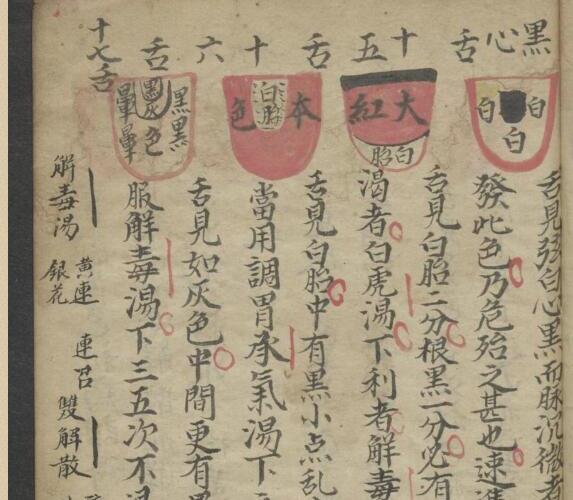 黑心舌
白
白
白
舌見弦白心黑而脉沉微者
發此色乃危殆之甚也速進
十五舌
大紅
白胎
舌見白胎二分根黑一分必有
渴者白虎湯下利者解毒
十六舌
本色
白胎
舌見白胎中有黑小点乱
當用調胃承氣湯下
十七舌
黑暈
黑暈
灰色
舌見如灰色中間更有黑
服解毒湯下三五次不退
解毒湯
黃連
銀花
連召
雙解散